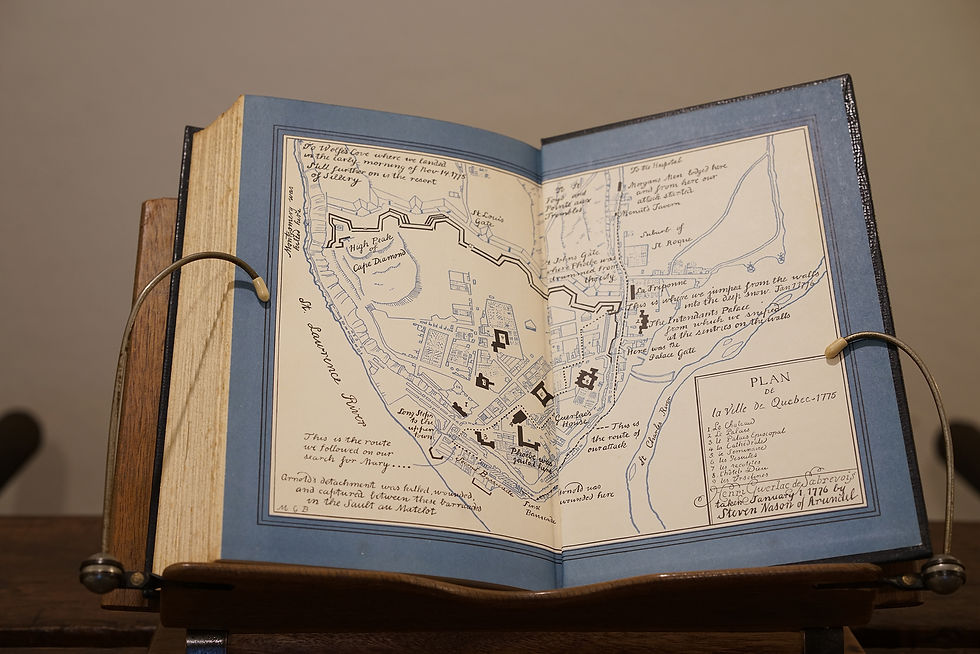 To Wolfe's Cove where we landed
in the early morning of Nov-14, 1775
Still further on is the resort
of Sillery
Montgomery was
killed here
St Louis
Gate
High Peak
of
Cape Diamond
St. Lawrence River
Long Steps
to the
upper
town
This is the route
we followed on our
search for Mary....
Arnold's detachment was killed, wounded,
and captured between these barricades
in the Sault au Matelot
M G B
To St
Foy
Pointe aux
Trembles
To the Hospital
Morgans Men lodged here
and from here our
attack started
Menut's Tavern
Suburb of
St Roque
St Johns Gate
where Phoebe was
drummed from
the city
La Friponne
This is where we jumped from the walls
into the deep snow Jan 1 1776
The Intendants Palace
from which we sniped
at the sentries on the walls
Here was the
Palace Gate
Guerlac's
House
This is
the route of
our attack
Phoebe was
jailed here
Arnold was
wounded here
St Charles River
PLAN
DE
la Ville de Quebec-1775
1 Le Chateau
2 Le Palais
3 Le Palais Episcopal
4 La Cathedrale
5 Le Seminaire
6 Les Jesuites
7 Les recollets
8 L'hotel Dieu
9 Les Ursulines
Henri Guerlac de Sabrevois
taken January 1, 1776 by
Steven Nason of Arundel